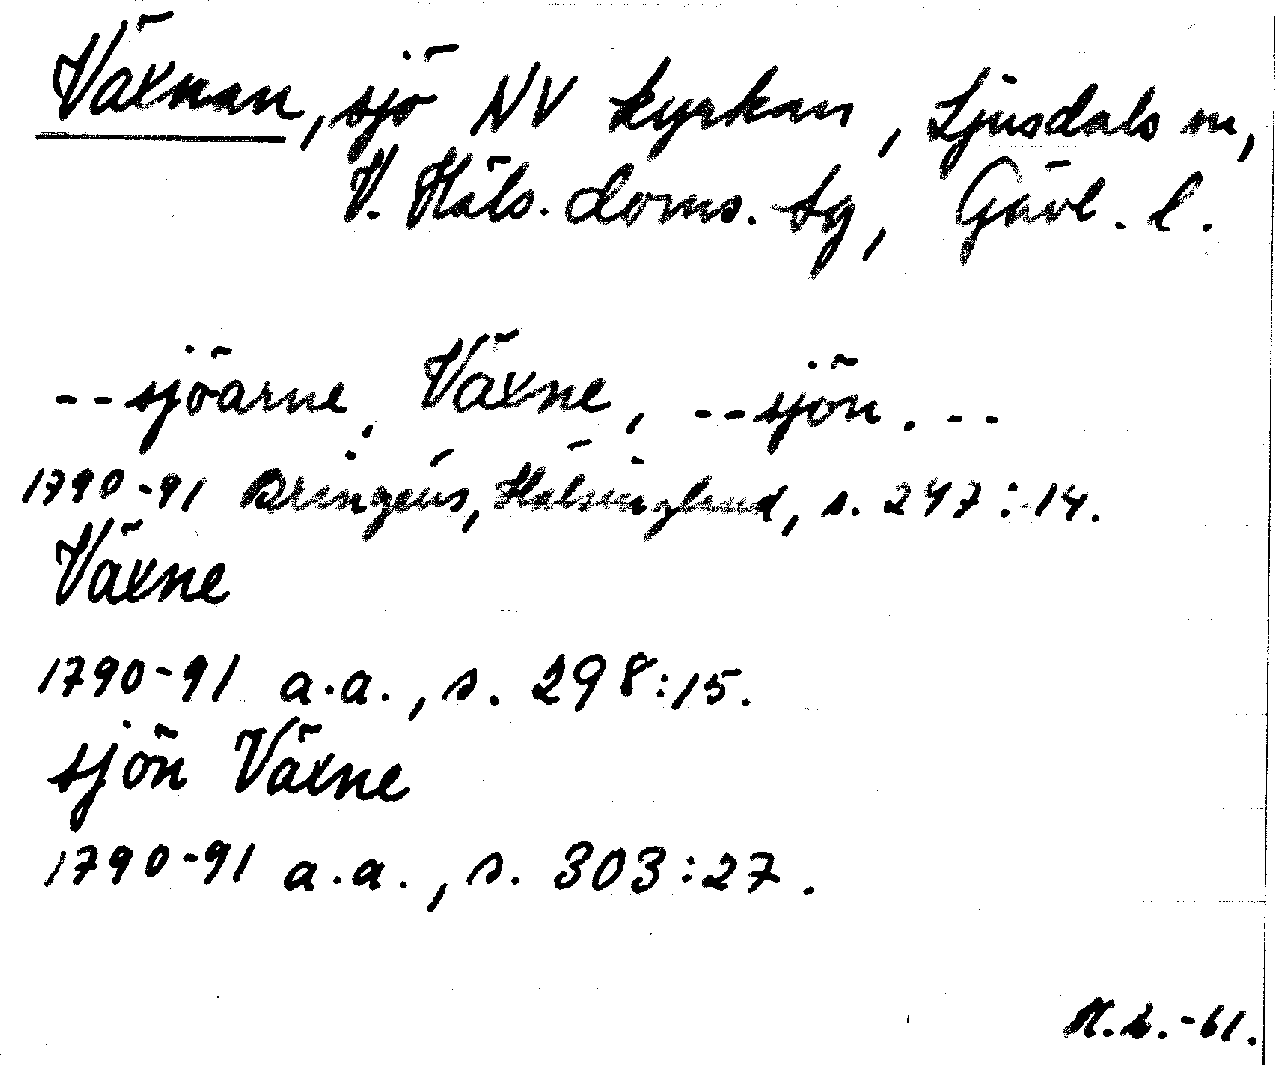 Växnan, sjö NV kyrkan, Ljusdals sn,
V. Häls. doms. tg, Gävl. l.
--sjöarne, Växne, --sjön. --
1790-91 Bringéus, Hälsingland, s. 247:14.
Växne
1790-91 a.a., s. 298:15.
sjön Växne
1790-91 a.a., s. 303:27.
-61.